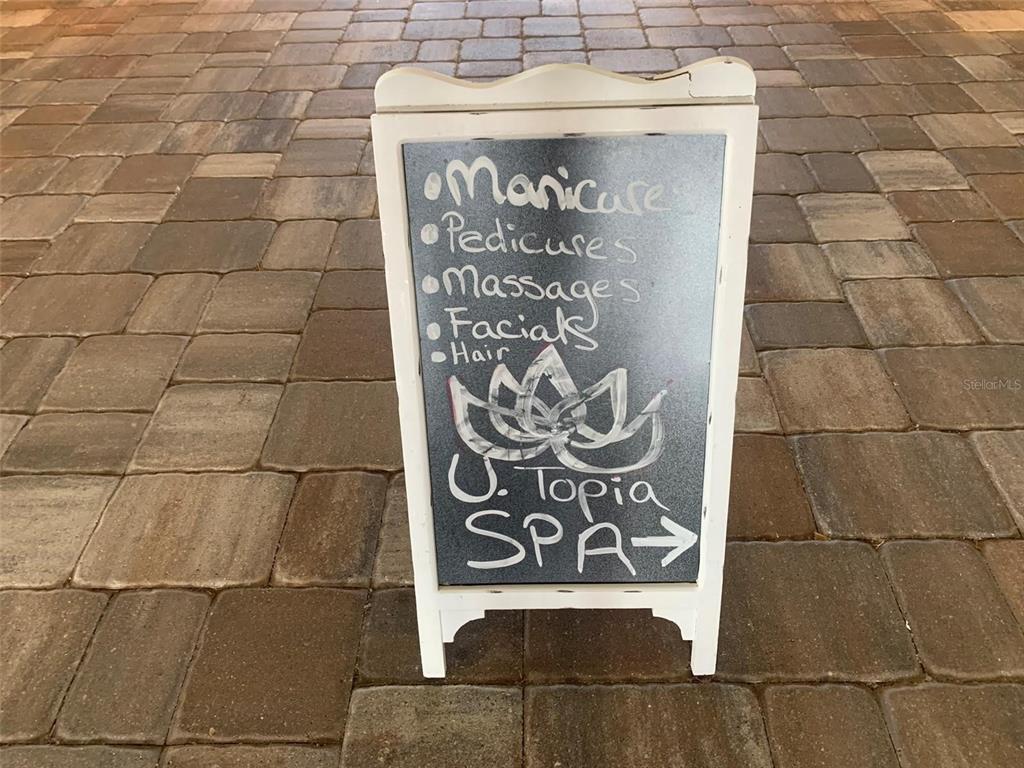 • Manicures
• Pedicures
• Massages
• Facials
• Hair
U. Topia
SPA →
StellarMLS